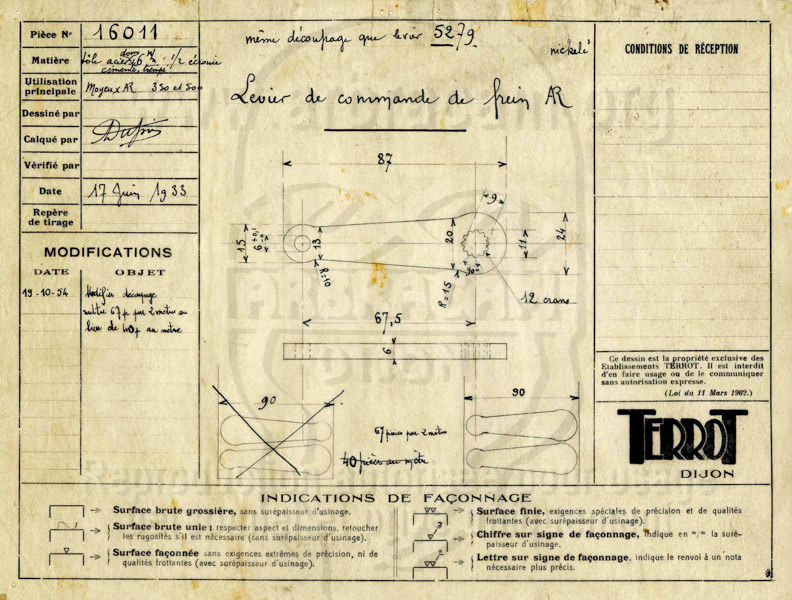 Pièce N° 16011
Matière
tôle acier doux
cémenté, trempé
1/2 écrouie
Utilisation principale
Moyeux AR 350 et 500
Dessiné par
Calqué par
Vérifié par
Date 17 Juin 1933
Repère de tirage
MODIFICATIONS
DATE OBJET
19-10-54 Modifier découpage
mettre 67 p par 2 mètres au
lieu de 40p au mètre
même découpage que levier 5279
nickelé
Levier de commande de frein AR
87
9
15
6
13
20
11
24
R=10
R=15
90°
12 crans
67,5
6
90
90
67 pièces par 2 mètres
40 pièces au mètre
CONDITIONS DE RÉCEPTION
Ce dessin est la propriété exclusive des
Etablissements TERROT. Il est interdit
d'en faire usage ou de le communiquer
sans autorisation expresse.
(Loi du 11 Mars 1902.)
TERROT
DIJON
INDICATIONS DE FAÇONNAGE
Surface brute grossière, sans surépaisseur d'usinage.
Surface brute unie: respecter aspect et dimensions, retoucher
les rugosités s'il est nécessaire (sans surépaisseur d'usinage).
Surface façonnée sans exigences extrêmes de précision, ni de
qualités frottantes (avec surépaisseur d'usinage).
Surface finie, exigences spéciales de précision et de qualités
frottantes (avec surépaisseur d'usinage).
3
Chiffre sur signe de façonnage, indique en m/m la suré-
paisseur d'usinage.
Lettre sur signe de façonnage, indique le renvoi à un nota
nécessaire plus précis.